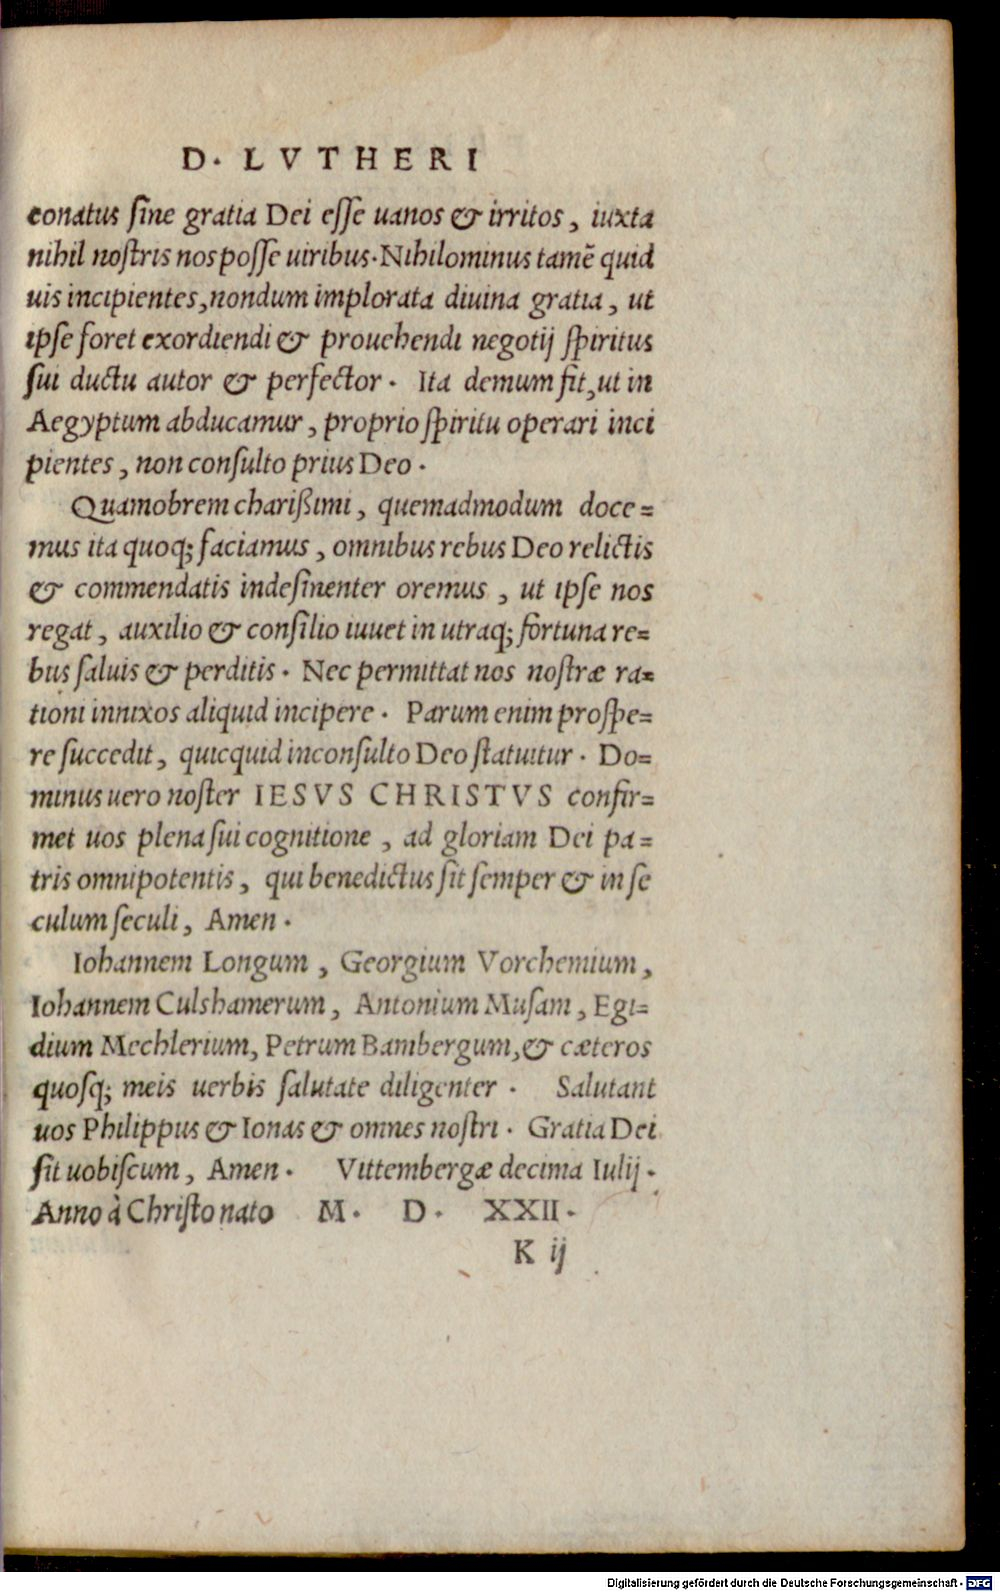 D. LVTHERI
conatus sine gratia Dei esse uanos & irritos, iuxta
nihil nostris nos posse uiribus. Nihilominus tamẽ quid
uis incipientes, nondum implorata diuina gratia, ut
ipse foret exordiendi & prouehendi negotij spiritus
sui ductu autor & perfector. Ita demum fit, ut in
Aegyptum abducamur, proprio spiritu operari inci
pientes, non consulto prius Deo.
Quamobrem charißimi, quemadmodum doce=
mus ita quoq; faciamus, omnibus rebus Deo relictis
& commendatis indesinenter oremus, ut ipse nos
regat, auxilio & consilio iuuet in utraq; fortuna re=
bus saluis & perditis. Nec permittat nos nostræ ra=
tioni innixos aliquid incipere. Parum enim prospe=
re succedit, quicquid inconsulto Deo statuitur. Do=
minus uero noster IESVS CHRISTVS confir=
met uos plena sui cognitione, ad gloriam Dei pa=
tris omnipotentis, qui benedictus sit semper & in se
culum seculi, Amen.
Iohannem Longum, Georgium Vorchemium,
Iohannem Culshamerum, Antonium Musam, Egi=
dium Mechlerium, Petrum Bambergum, & cæteros
quosq; meis uerbis salutate diligenter. Salutant
uos Philippus & Ionas & omnes nostri. Gratia Dei
sit uobiscum, Amen. Vittembergæ decima Iulij.
Anno à Christo nato M. D. XXII.
K ij
Digitalisierung gefördert durch die Deutsche Forschungsgemeinschaft - DFG